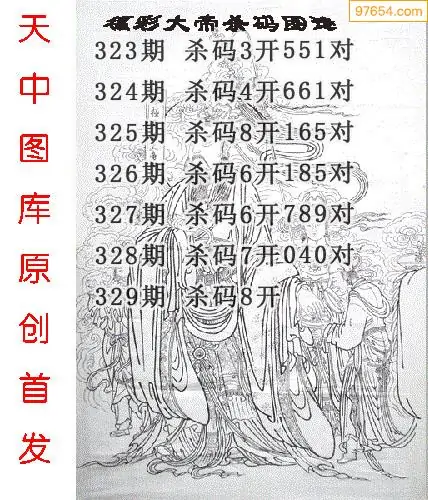 97654.com
福彩大帝杀码图
323期 杀码3开551对
324期 杀码4开661对
325期 杀码8开165对
326期 杀码6开185对
327期 杀码6开789对
328期 杀码7开040对
329期 杀码8开
天中图库原创首发